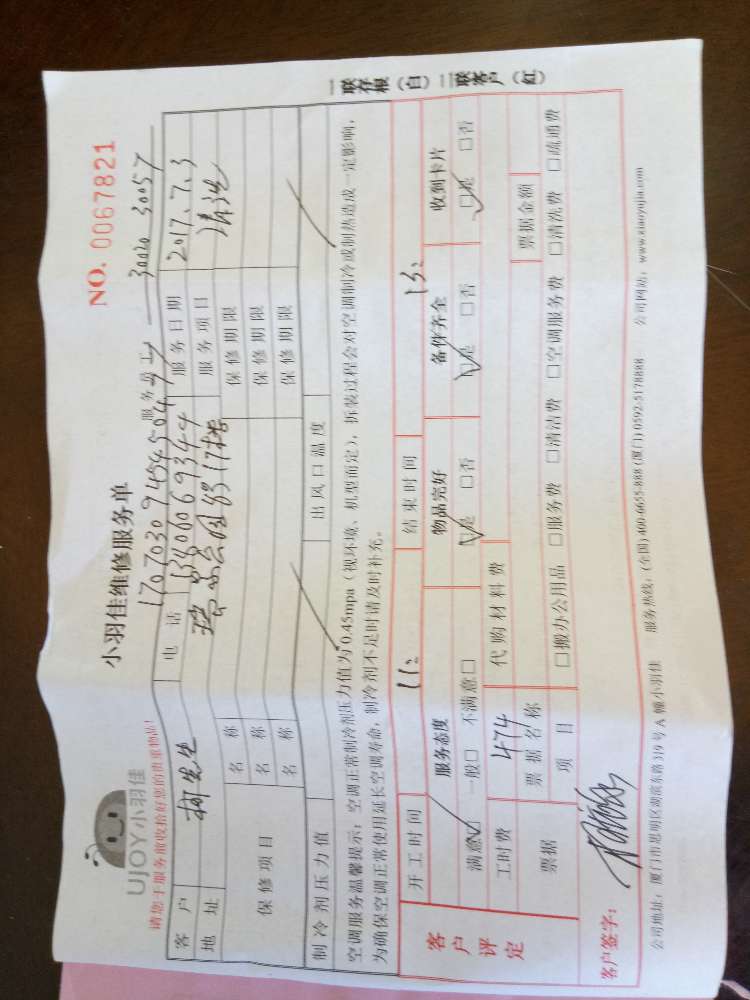 一联存根（白）二联客户（红）
小羽佳维修服务单
NO. 0067821
UJOY小羽佳
请您于服务前收拾好您的贵重物品!
服务员工 30020 30057
客户 柯先生 电话 13400693
服务日期 2017.7.3
地址 服务项目 清洗
保修项目 名称 保修期限
名称 保修期限
名称 保修期限
制冷剂压力值 出风口温度
空调服务温馨提示：空调正常制冷剂压力值为0.45mpa（视环境、机型而定），拆装过程会对空调制冷或制热造成一定影响，
为确保空调正常使用延长空调寿命，制冷剂不足时请及时补充。
开工时间 11: 结束时间 13:
客户评定 服务态度 物品完好 备件齐全 收到卡片
满意☑ 一般□ 不满意□ ☑是 □否 ☑是 □否 ☑是 □否
工时费 474 代购材料费
票据 票据名称 票据金额
项目 □搬办公用品 □服务费 □清洁费 □空调服务费 □清洗费 □疏通费
客户签字：
公司地址：厦门市思明区湖滨东路319号A幢小羽佳 服务热线：(全国)400-6655-888 (厦门)0592-5178888 公司网站：www.xiaoyujia.com